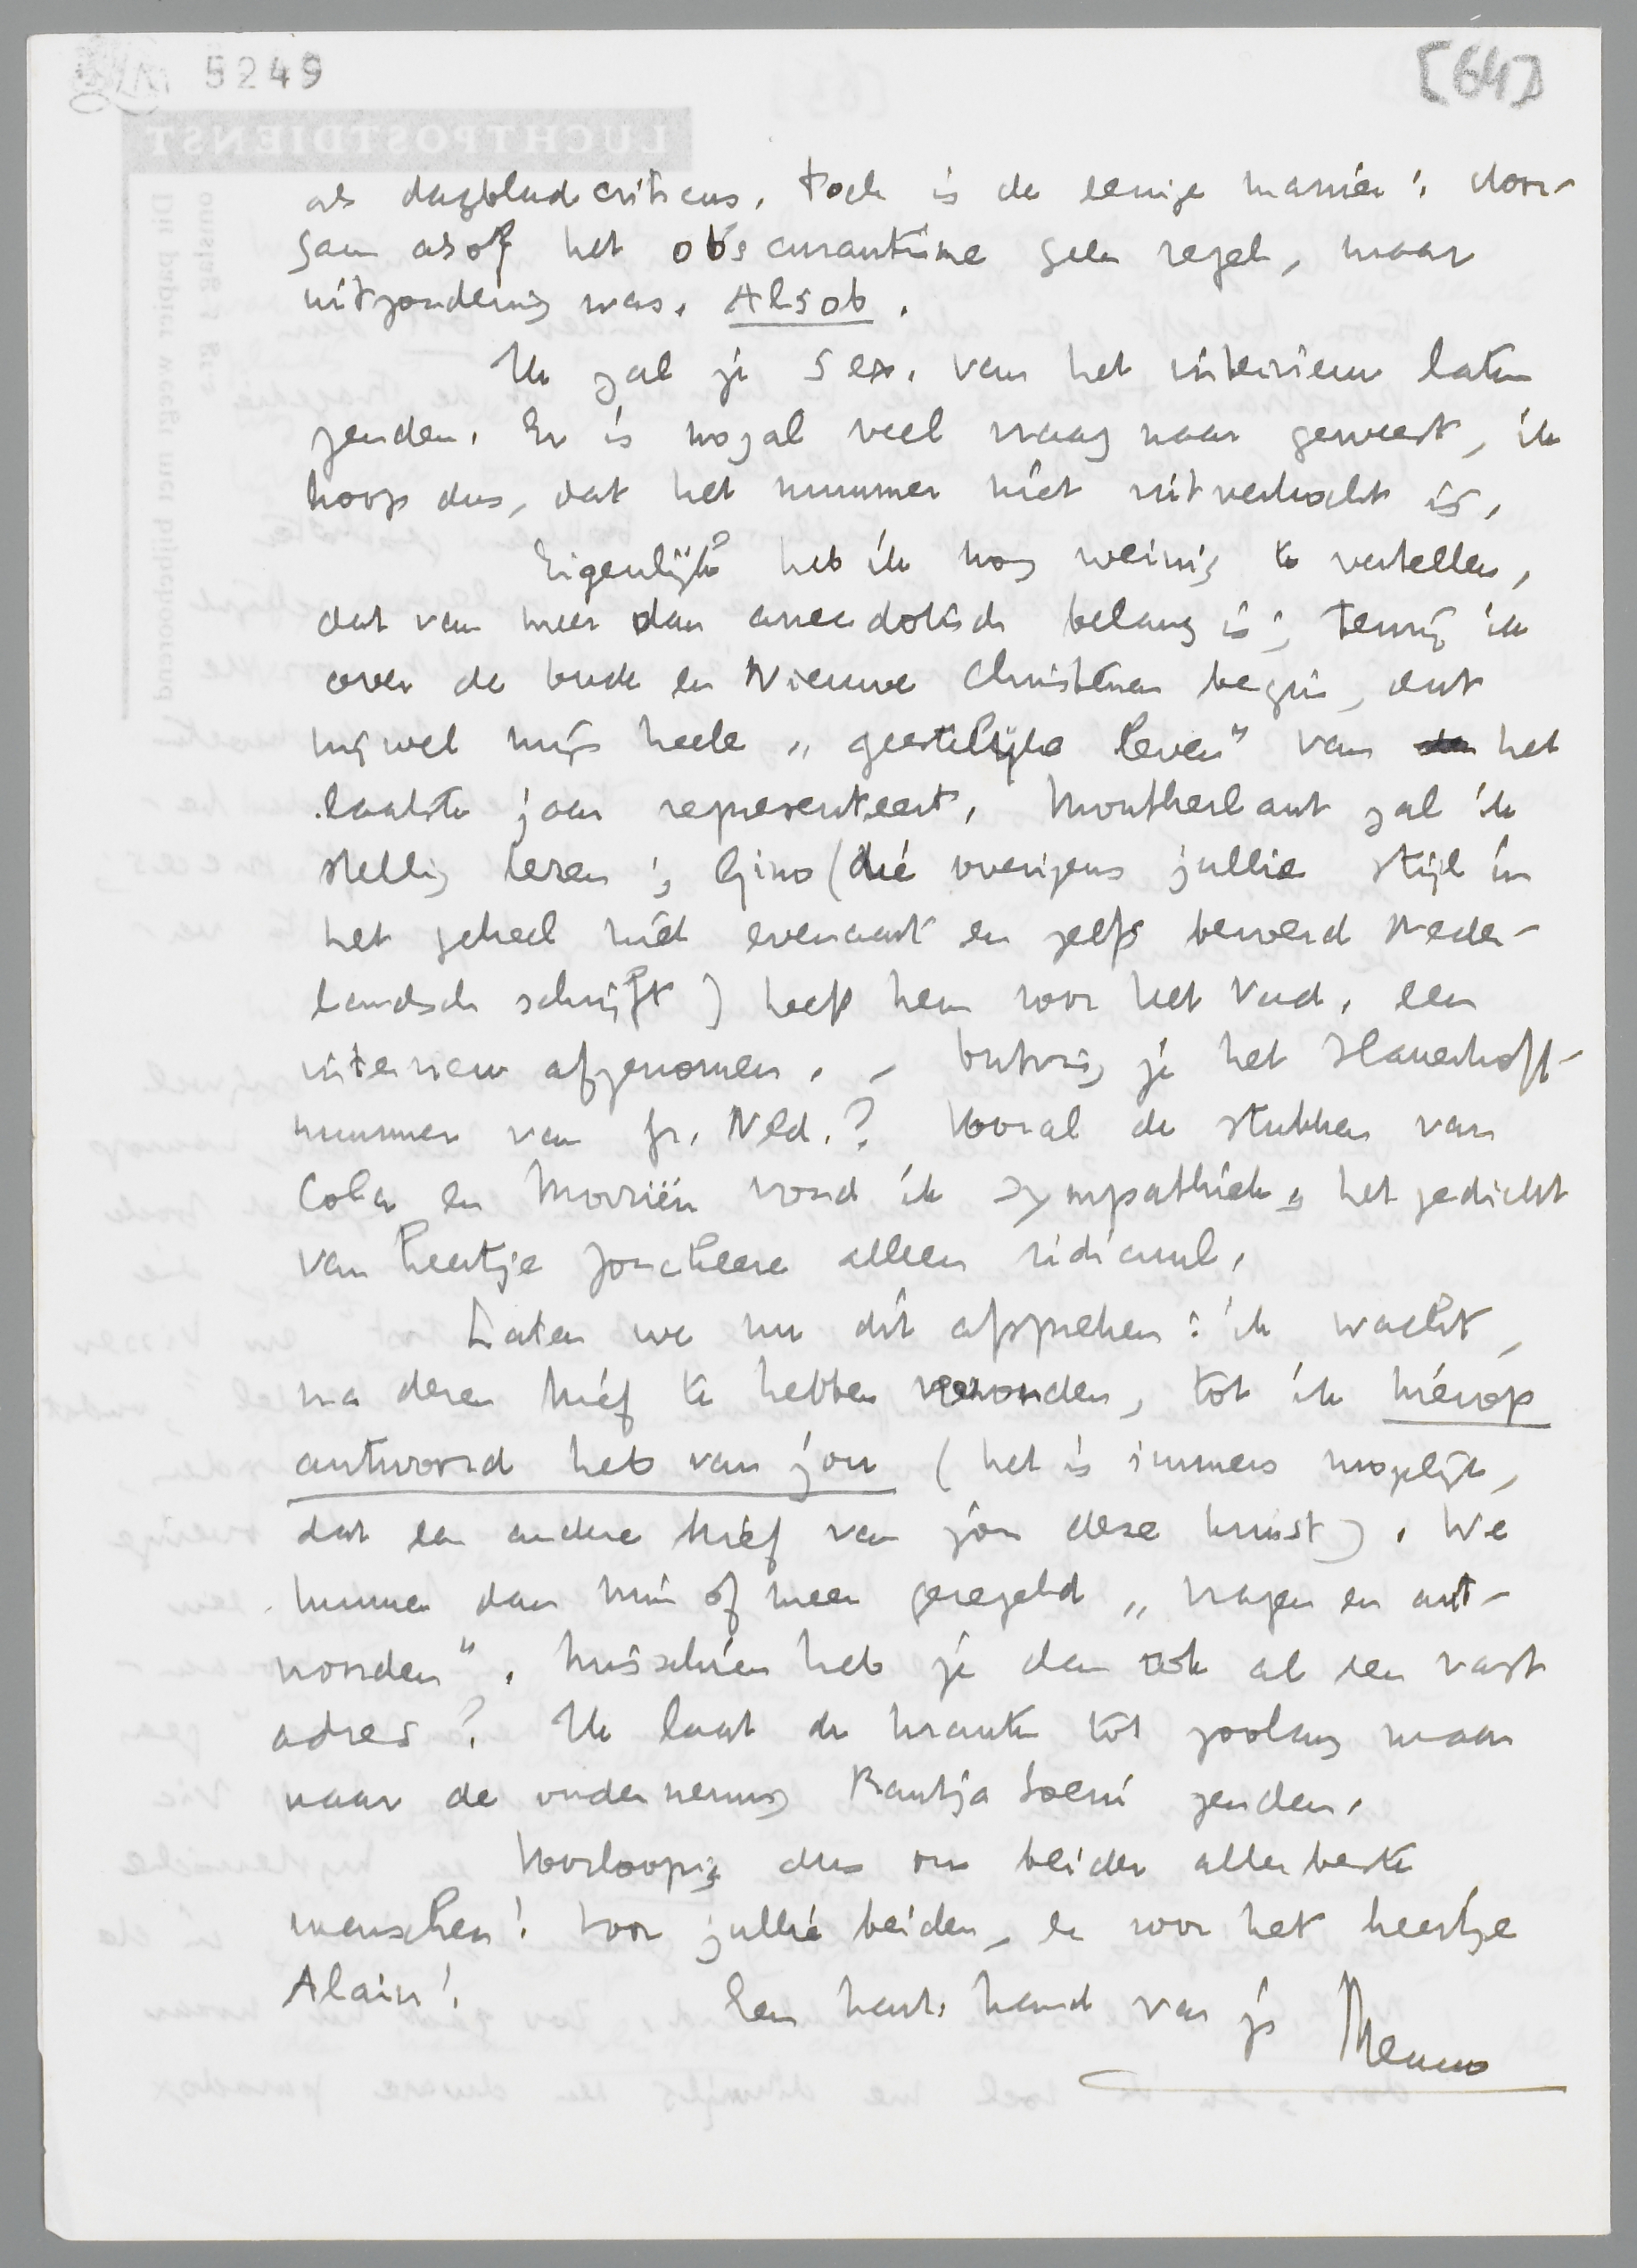 5249
[64]
LUCHTPOSTDIENST
als dagbladcriticus. Toch is de eenige manier: door-
gaan alsof het obscurantisme geen regel, maar
uitzondering was. Alsob.
Ik zal je 5 ex. van het interview laten
zenden. Er is nogal veel vraag naar geweest, ik
hoop dus, dat het nummer niet uitverkocht is.
Eigenlijk heb ik nog weinig te vertellen,
dat van meer dan anecdotisch belang is; tenzij ik
over de Oude en Nieuwe Christenen begin, dat
nijwel mijn heele „geestelijke leven" van het
laatste jaar representeert. Montherlant zal ik
stellig lezen; Gino (die overigens jullie stijl in
het geheel niet evenaart en zelfs beroerd Neder-
landsch schrijft) heeft hem voor het Vad. een
interview afgenomen. – Ontving je het Slauerhoff-
nummer van Gr. Nld.? Vooral de stukken van
Cola en Morriën vond ik sympathiek, het gedicht
van heertje Jonckheere alleen ridicuul.
Laten we nu dit afspreken: ik wacht,
na dezen brief te hebben verzonden, tot ik hierop
antwoord heb van jou (het is immers mogelijk,
dat een andere brief van jou deze kruist). We
kunnen dan min of meer geregeld „vragen en ant-
woorden". Misschien heb je dan ook al een vast
adres? Ik laat de kranten tot zoolang maar
naar de onderneming Bantja Soeni zenden.
Voorloopig dus ons beider allerbeste
wenschen! Voor jullie beiden, en voor het heertje
Alain!
Een hart. hand van je Menno